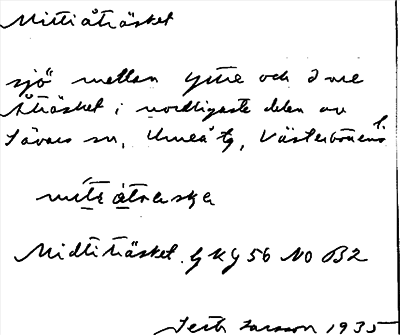 Mittiåträsket
sjö mellan Yttre och Inre
Åträsket i nordligaste delen av
Sävars sn, Umeå tg, Västerbottens l.
Midtiträsket. GKG 56 NO B2
Larsson 1935